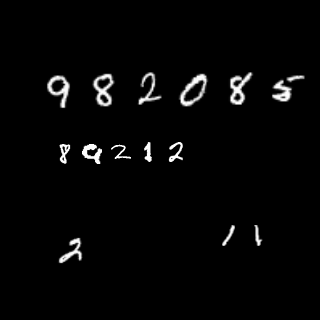 982085
89212
2 11